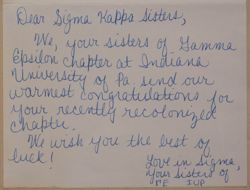 Dear Sigma Kappa Sisters,
We, your sisters of Gamma
Epsilon chapter at Indiana
University of Pa. send our
warmest congratulations for
your recently recolonized
chapter.
We wish you the best of
luck!
Love in Sigma
your Sisters of
ΓE IUP